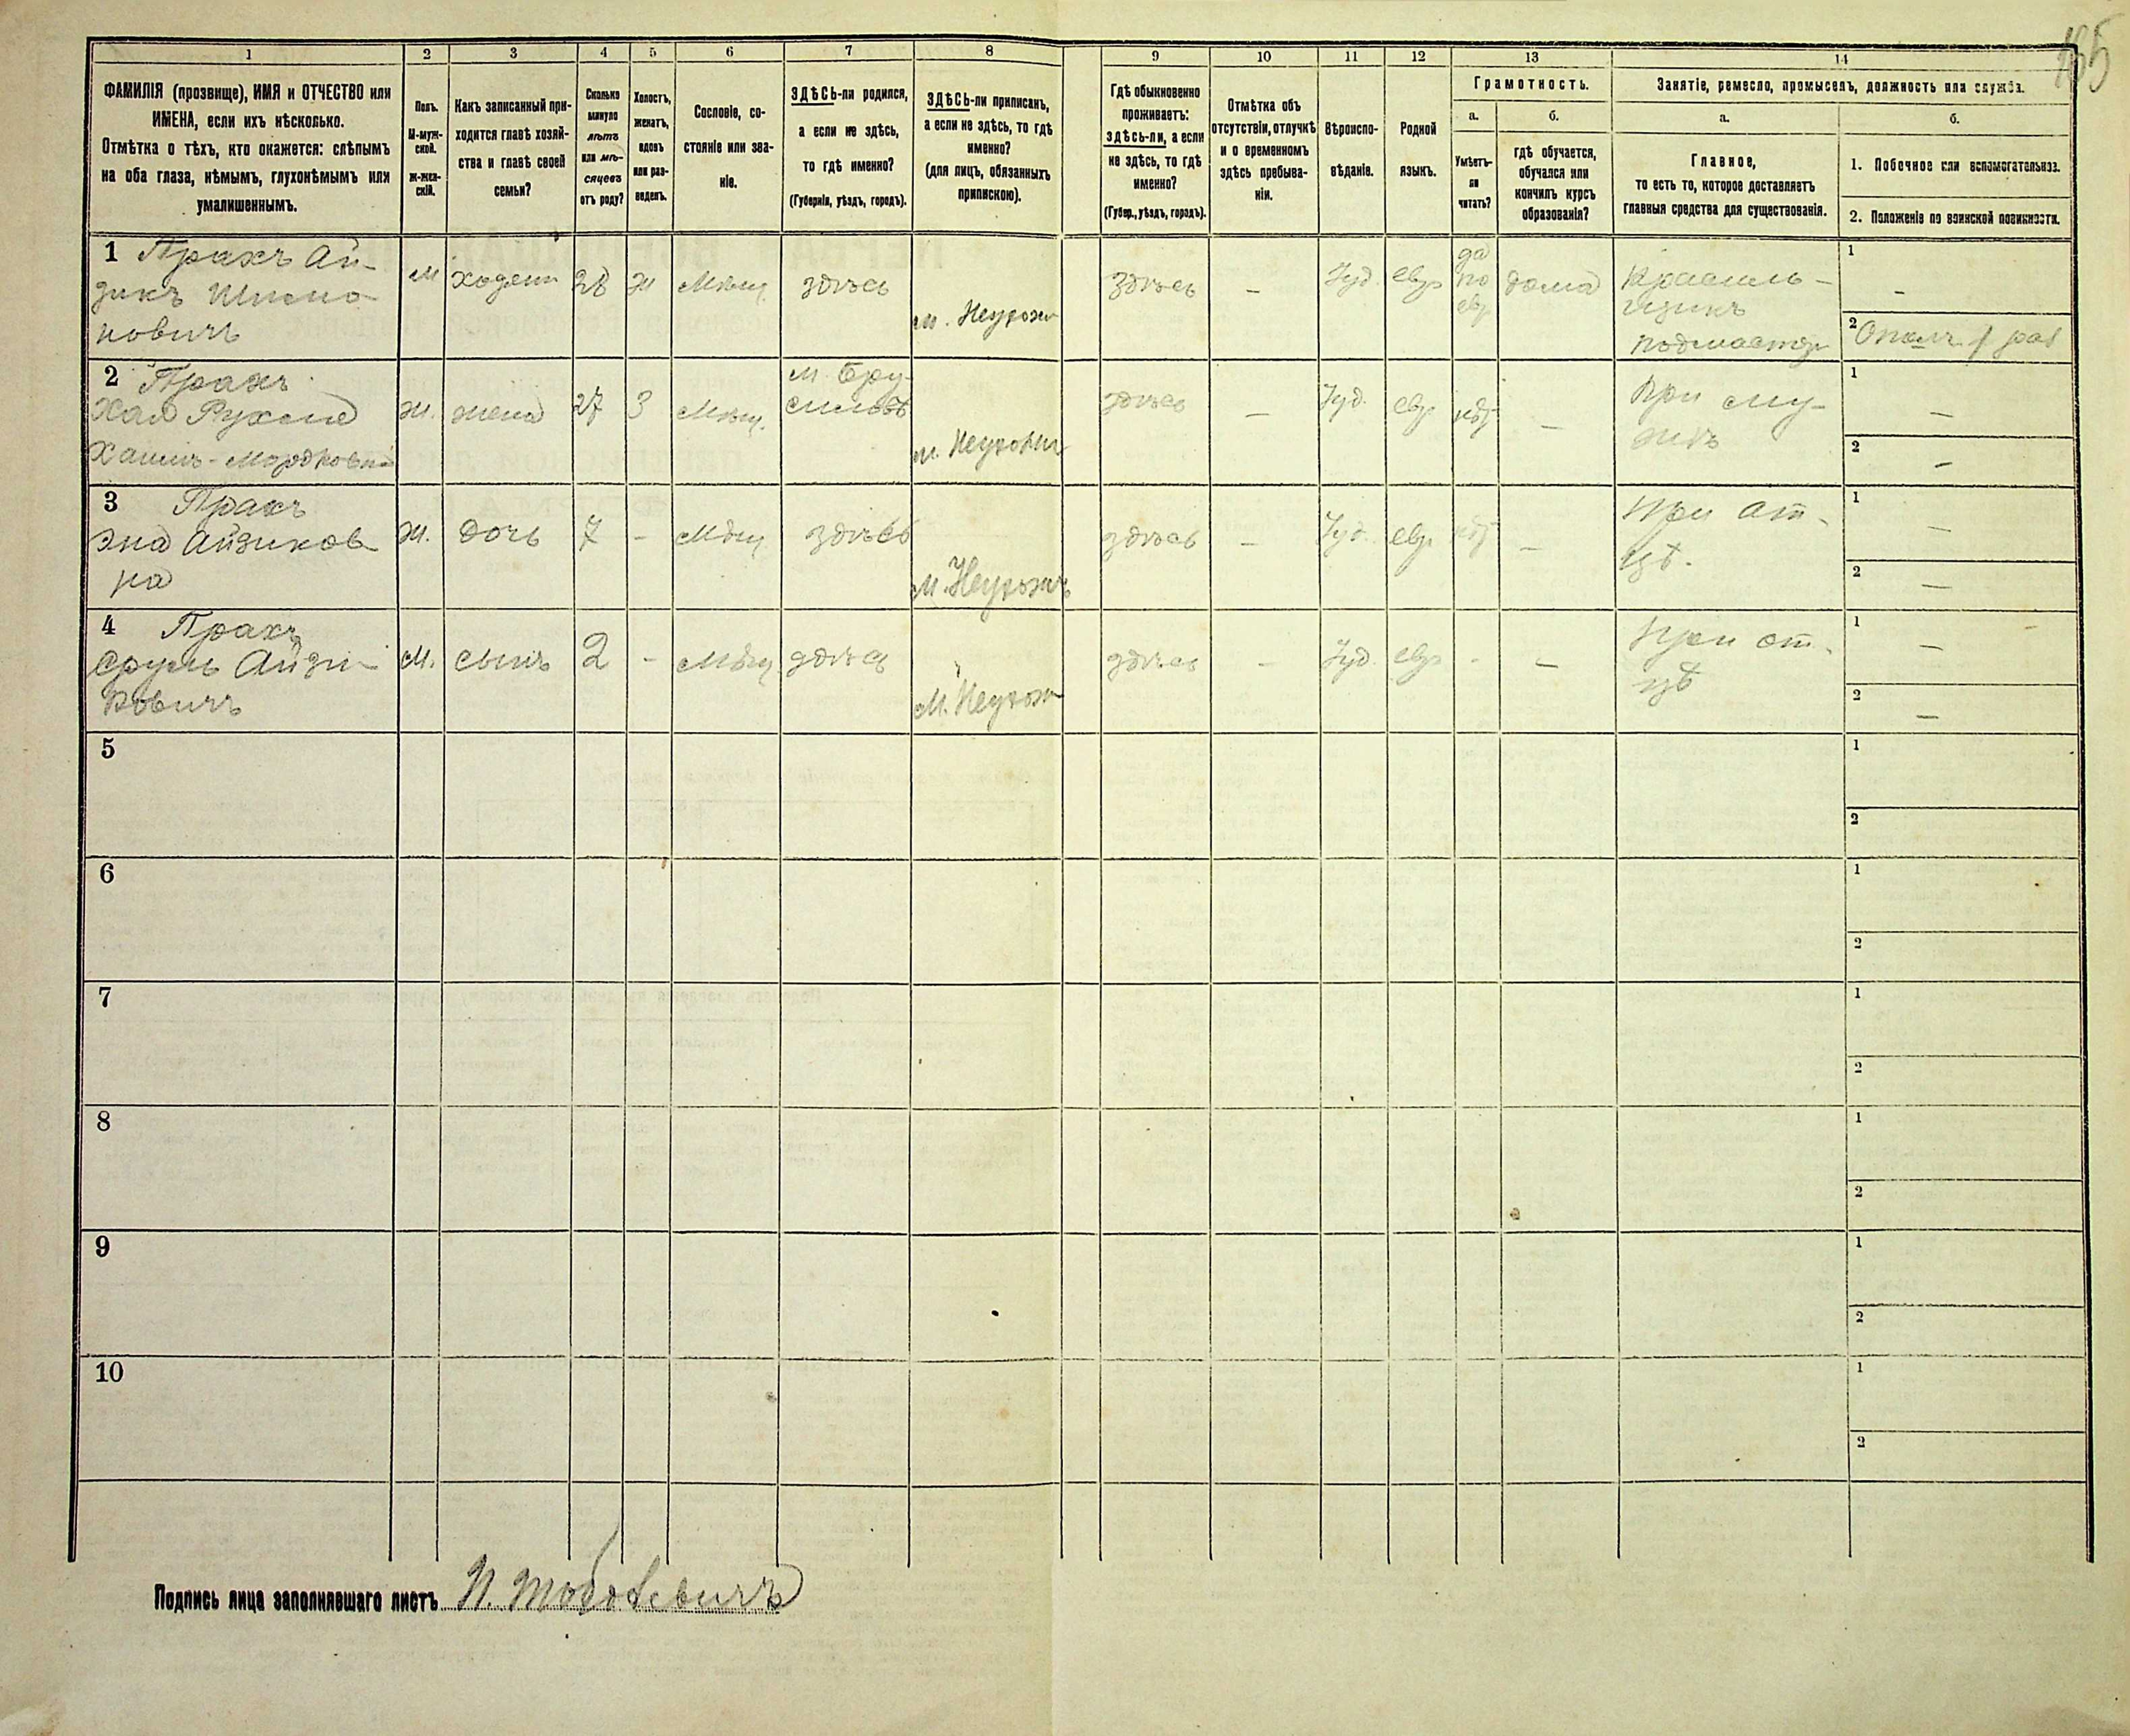 165
1 2 3 4 5 6 7 8 9 10 11 12 13 14
ФАМИЛІЯ (прозвище), ИМЯ и ОТЧЕСТВО или
ИМЕНА, если ихъ нѣсколько.
Отмѣтка о тѣхъ, кто окажется: слѣпымъ
на оба глаза, нѣмымъ, глухонѣмымъ или
умалишеннымъ.
Полъ.
М-муж-
ской.
Ж-жен-
скій.
Какъ записанный при-
ходится главѣ хозяй-
ства и главѣ своей
семьи?
Сколько
минуло
лѣтъ
или мѣ-
сяцевъ
отъ роду?
Холостъ,
женатъ,
вдовъ
или раз-
веденъ.
Сословіе, со-
стояніе или зва-
ніе.
ЗДѢСЬ-ли родился,
а если не здѣсь,
то гдѣ именно?
(Губернія, уѣздъ, городъ).
ЗДѢСЬ-ли приписанъ,
а если не здѣсь, то гдѣ
именно?
(для лицъ, обязанныхъ
припискою).
Гдѣ обыкновенно
проживаетъ:
здѣсь-ли, а если
не здѣсь, то гдѣ
именно?
(Губер., уѣздъ, городъ).
Отмѣтка объ
отсутствіи, отлучкѣ
и о временномъ
здѣсь пребыва-
ніи.
Вѣроиспо-
вѣданіе.
Родной
языкъ.
Грамотность.
а.
Умѣетъ-
ли
читать?
б.
гдѣ обучается,
обучался или
кончилъ курсъ
образованія?
Занятіе, ремесло, промыселъ, должность или служба.
а.
Главное,
то есть то, которое доставляетъ
главныя средства для существованія.
б.
1. Побочное или вспомогательное.
2. Положеніе по воинской повинности.
1 Прахъ Ай-
зикъ
новичъ
М
28
ж
Мѣщ.
здѣсь
м.
здѣсь
–
Іуд.
евр
да
по
евр
дома
Красиль-
щикъ
подмастер
1
-
2 Ополч. 1 раз
2 Прахъ
Хая Рухля
Хаимъ-Мордковна
Ж.
жена
27
З
Мѣщ.
м. Бру-
силовъ
м.
здѣсь
–
Іуд.
евр
нѣт
–
При му-
жѣ
1
–
2
–
3 Прахъ
Эна Айзиков
на
Ж.
дочь
7
-
Мѣщ
здѣсь
м.
здѣсь
–
Іуд.
евр
нѣт
–
При от-
цѣ.
1
–
2
–
4 Прахъ
Сруль Айзи-
ковичъ
М.
сынъ
2
-
Мѣщ
здѣсь
М.
здѣсь
–
Іуд.
евр
-
–
При от-
цѣ
1
–
2
–
5
1
2
6
1
2
7
1
2
8
1
2
9
1
2
10
1
2
Подпись лица заполнявшаго листъ